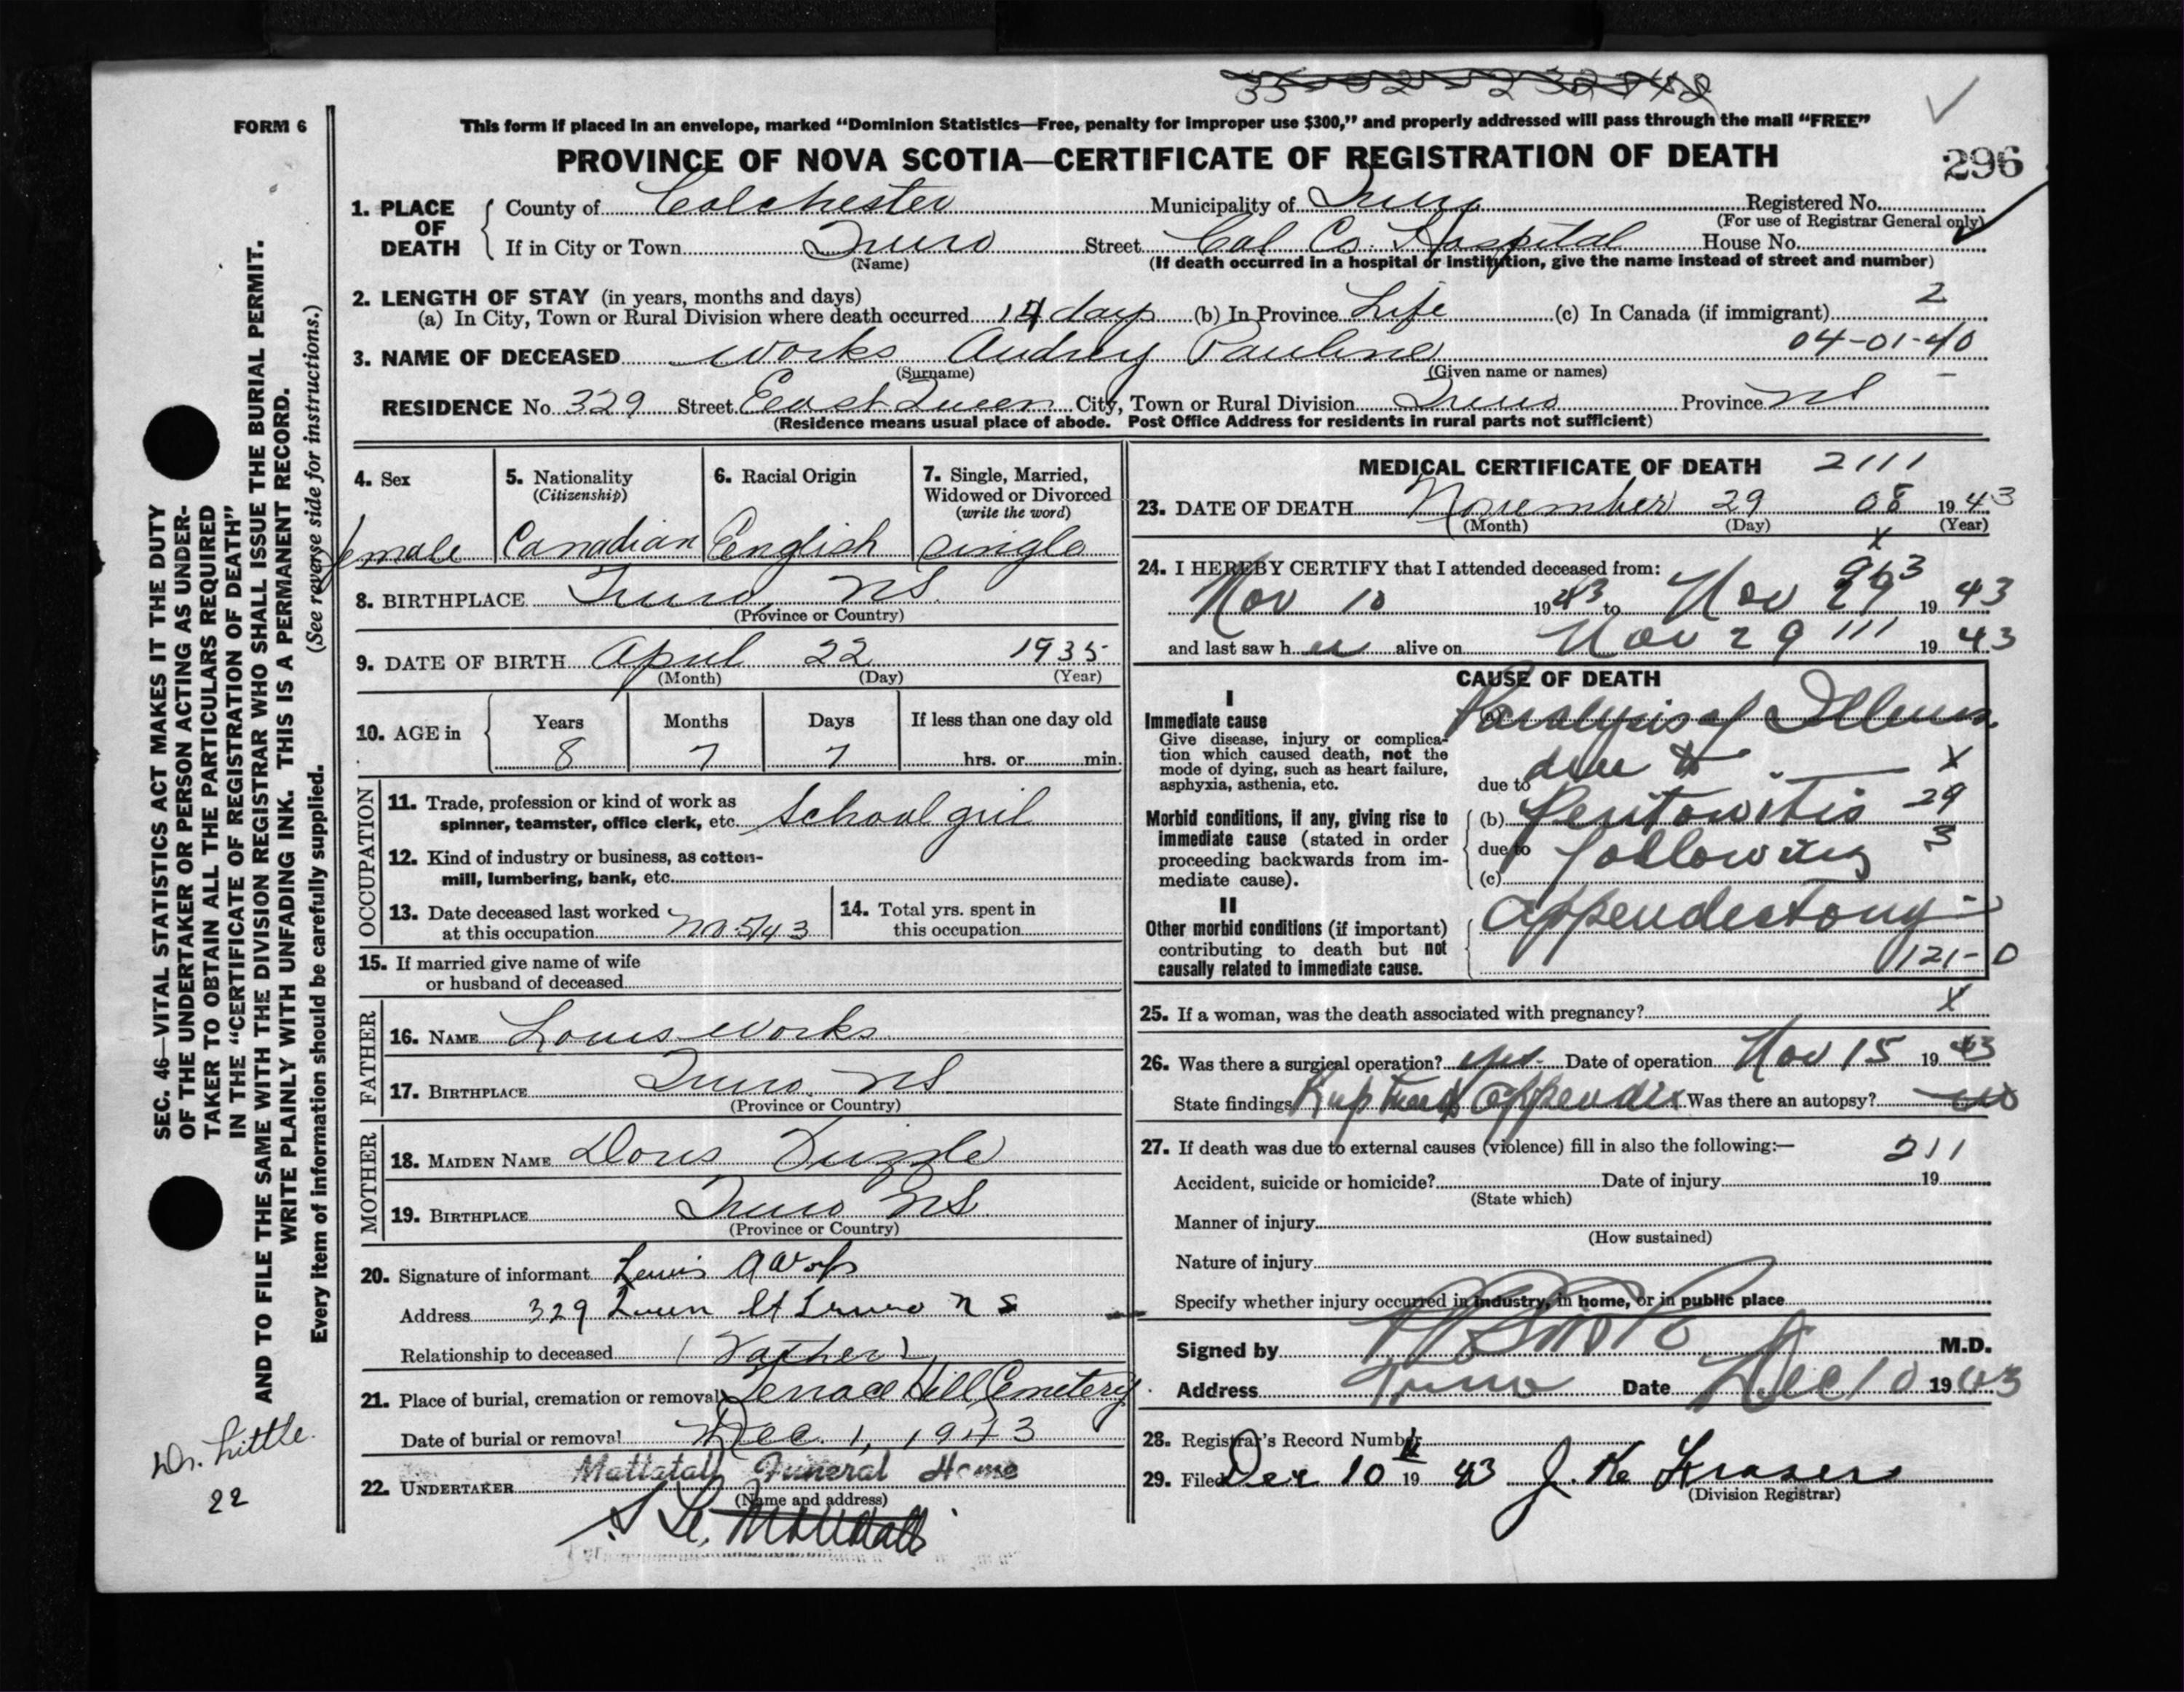 FORM 6
This form if placed in an envelope, marked “Dominion Statistics—Free, penalty for improper use $300,” and properly addressed will pass through the mail “FREE”
PROVINCE OF NOVA SCOTIA—CERTIFICATE OF REGISTRATION OF DEATH
296
1. PLACE OF DEATH
County of Colchester Municipality of Truro Registered No.
(For use of Registrar General only)
If in City or Town Truro Street Col Co. Hospital House No.
(Name) (If death occurred in a hospital or institution, give the name instead of street and number)
2. LENGTH OF STAY (in years, months and days)
(a) In City, Town or Rural Division where death occurred 14 days (b) In Province Life (c) In Canada (if immigrant) 2
3. NAME OF DECEASED Works Audrey Pauline 04-01-40
(Surname) (Given name or names)
RESIDENCE No. 329 Street East Queen City, Town or Rural Division Truro Province NS
(Residence means usual place of abode. Post Office Address for residents in rural parts not sufficient)
4. Sex female
5. Nationality (Citizenship) Canadian
6. Racial Origin English
7. Single, Married, Widowed or Divorced (write the word) single
8. BIRTHPLACE Truro, NS.
(Province or Country)
9. DATE OF BIRTH April 22 1935
(Month) (Day) (Year)
10. AGE in Years Months Days If less than one day old
8 7 7 hrs. or min.
OCCUPATION
11. Trade, profession or kind of work as spinner, teamster, office clerk, etc. School girl
12. Kind of industry or business, as cotton-mill, lumbering, bank, etc.
13. Date deceased last worked at this occupation
14. Total yrs. spent in this occupation
15. If married give name of wife or husband of deceased
FATHER
16. NAME Louis Works
17. BIRTHPLACE Truro, NS
(Province or Country)
MOTHER
18. MAIDEN NAME Doris
19. BIRTHPLACE Truro NS
(Province or Country)
20. Signature of informant Lewis A Works
Address 329 Queen St Truro N S
Relationship to deceased (Father)
21. Place of burial, cremation or removal Terrace Hill Cemetery
Date of burial or removal Dec. 1, 1943
22. UNDERTAKER Mattatall Funeral Home
(Name and address)
MEDICAL CERTIFICATE OF DEATH 2111
23. DATE OF DEATH November 29 08 1943
(Month) (Day) (Year)
x
24. I HEREBY CERTIFY that I attended deceased from:
Nov 10 1943 to Nov 29 1943
and last saw her alive on Nov 29 111 1943
CAUSE OF DEATH
I
Immediate cause
Give disease, injury or complication which caused death, not the mode of dying, such as heart failure, asphyxia, asthenia, etc.
(a) Paralysis of Illeum
due to due to x
Morbid conditions, if any, giving rise to immediate cause (stated in order proceeding backwards from immediate cause).
(b) Peritonitis 29
due to following 3
(c)
II
Other morbid conditions (if important) contributing to death but not causally related to immediate cause.
Appendectomy
121-0
25. If a woman, was the death associated with pregnancy? x
26. Was there a surgical operation? yes Date of operation Nov 15 1943
State findings Ruptured appendix Was there an autopsy? no
27. If death was due to external causes (violence) fill in also the following:— 211
Accident, suicide or homicide? Date of injury 19
(State which)
Manner of injury
(How sustained)
Nature of injury
Specify whether injury occurred in industry, in home, or in public place
Signed by M.D.
Address Truro Date Dec 10 1943
28. Registrar's Record Number
29. Filed Dec 10 1943 J. K. Fraser
(Division Registrar)
SEC. 46—VITAL STATISTICS ACT MAKES IT THE DUTY
OF THE UNDERTAKER OR PERSON ACTING AS UNDER-
TAKER TO OBTAIN ALL THE PARTICULARS REQUIRED
IN THE “CERTIFICATE OF REGISTRATION OF DEATH”
AND TO FILE THE SAME WITH THE DIVISION REGISTRAR WHO SHALL ISSUE THE BURIAL PERMIT.
WRITE PLAINLY WITH UNFADING INK. THIS IS A PERMANENT RECORD.
Every item of information should be carefully supplied. (See reverse side for instructions.)
Dr. Little.
22